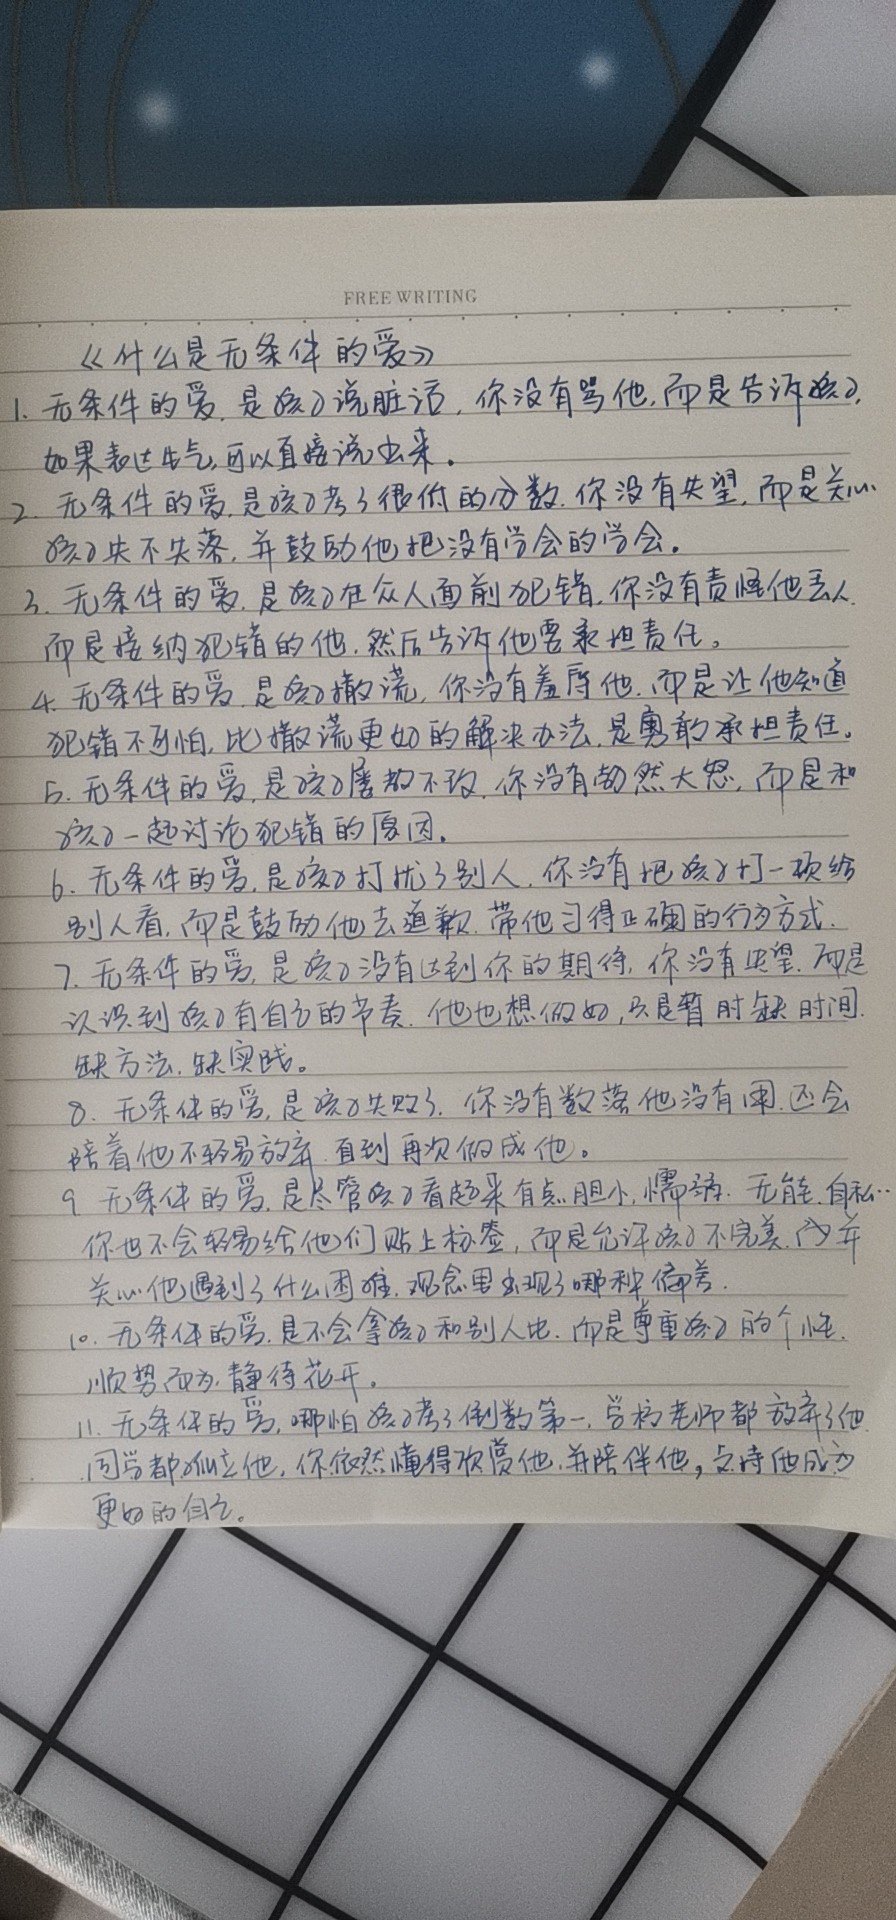 FREE WRITING
《什么是无条件的爱》
1. 无条件的爱,是孩子说脏话,你没有骂他,而是告诉孩子,
如果表达生气,可以直接说出来。
2. 无条件的爱,是孩子考了很低的分数,你没有失望,而是关心
孩子失不失落,并鼓励他把没有学会的学会。
3. 无条件的爱,是孩子在众人面前犯错,你没有责怪他丢人,
而是接纳犯错的他,然后告诉他要承担责任。
4. 无条件的爱,是孩子撒谎,你没有羞辱他,而是让他知道
犯错不可怕,比撒谎更好的解决办法,是勇敢承担责任。
5. 无条件的爱,是孩子屡教不改,你没有勃然大怒,而是和
孩子一起讨论犯错的原因。
6. 无条件的爱,是孩子打扰了别人,你没有把孩子打一顿给
别人看,而是鼓励他去道歉,带他习得正确的行为方式.
7. 无条件的爱,是孩子没有达到你的期待,你没有失望,而是
认识到孩子有自己的节奏,他也想做好,只是暂时缺时间,
缺方法,缺实践。
8. 无条件的爱,是孩子失败了,你没有数落他没有用,还会
陪着他不轻易放弃,直到再次做成他。
9. 无条件的爱,是尽管孩子看起来有点胆小,懦弱,无能,自私…
你也不会轻易给他们贴上标签,而是允许孩子不完美,并
关心他遇到了什么困难,观念里出现了哪种偏差.
10. 无条件的爱,是不会拿孩子和别人比,而是尊重孩子的个性,
顺势而为,静待花开。
11. 无条件的爱,哪怕孩子考了倒数第一,学校老师都放弃了他
同学都孤立他,你依然懂得欣赏他,并陪伴他,支持他成为
更好的自己。